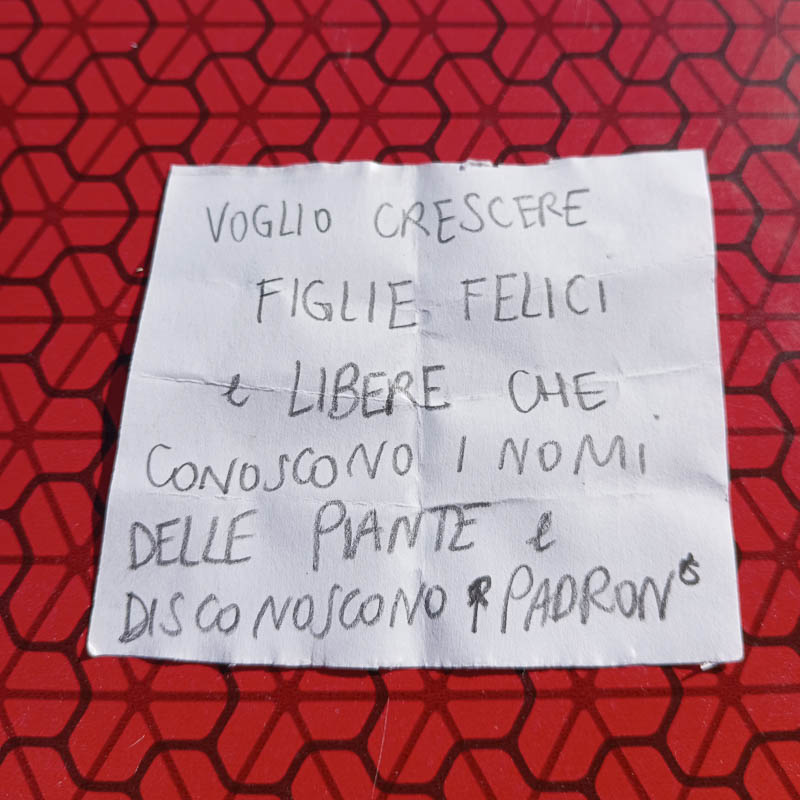 VOGLIO CRESCERE
FIGLIE FELICI
e LIBERE CHE
CONOSCONO I NOMI
DELLE PIANTE e
DISCONOSCONO PADRON*